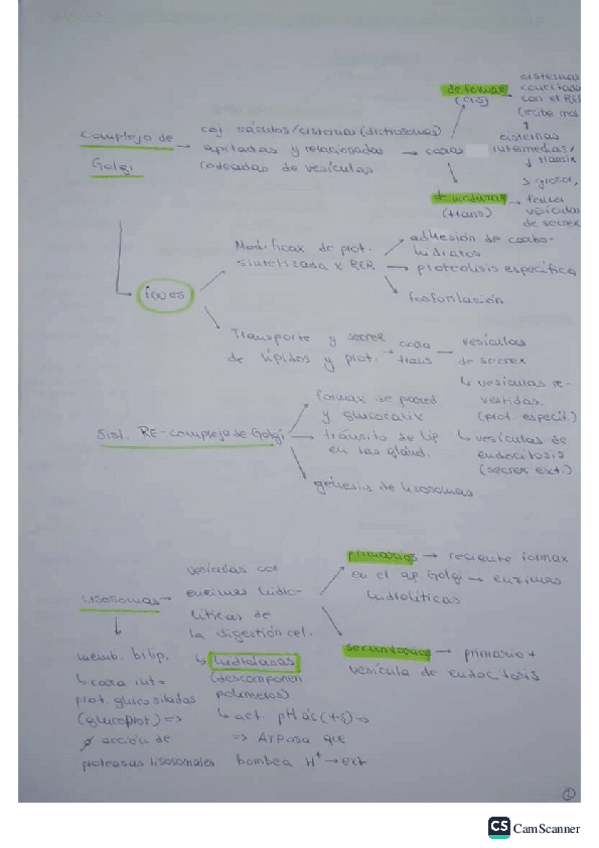 Complejo de
Golgi
cój sáculos/cisternas (dictiosomas)
apiladas y relacionadas
rodeadas de vesículas
caras
de formax
(cis)
cisternas
conectadas
con el RER
(recibe mat
cisternas
intermedias/
transix
> grosor,
de madurax
(trans)
forma
vesículas
de secrex
fxnes
Modificax de prot.
sintetizada x RER
adhesión de carbo-
hidratos
proteolisis específica
fosforilación
Transporte y secrex
de lípidos y prot.
cara
trans
vesículas
de secrex
↳ vesículas re-
vestidas.
(prot. específ.)
↳ vesículas de
endocitosis
(secrex ext.)
Sist. RE-complejo de Golgi
formax de pared
y glucocalix
tránsito de líp
en las gland.
génesis de lisosomas
Lisosomas
vesículas con
enzimas hidro-
líticas de
la digestión cel.
primarios → reciente formax
en el ap. Golgi → enzimas
hidrolíticas
secundarios → primario +
vesícula de endocitosis
memb. bilip.
↳ cara int =
prot. glucosiladas
(glucoprot) =>
∅ acción de
proteasas lisosomales
↳ hidrolasas
(descomponen
polímeros)
↳ act pH ác (4-5) =>
=> ATPasa que
bombea H⁺ → ext
1
CS CamScanner